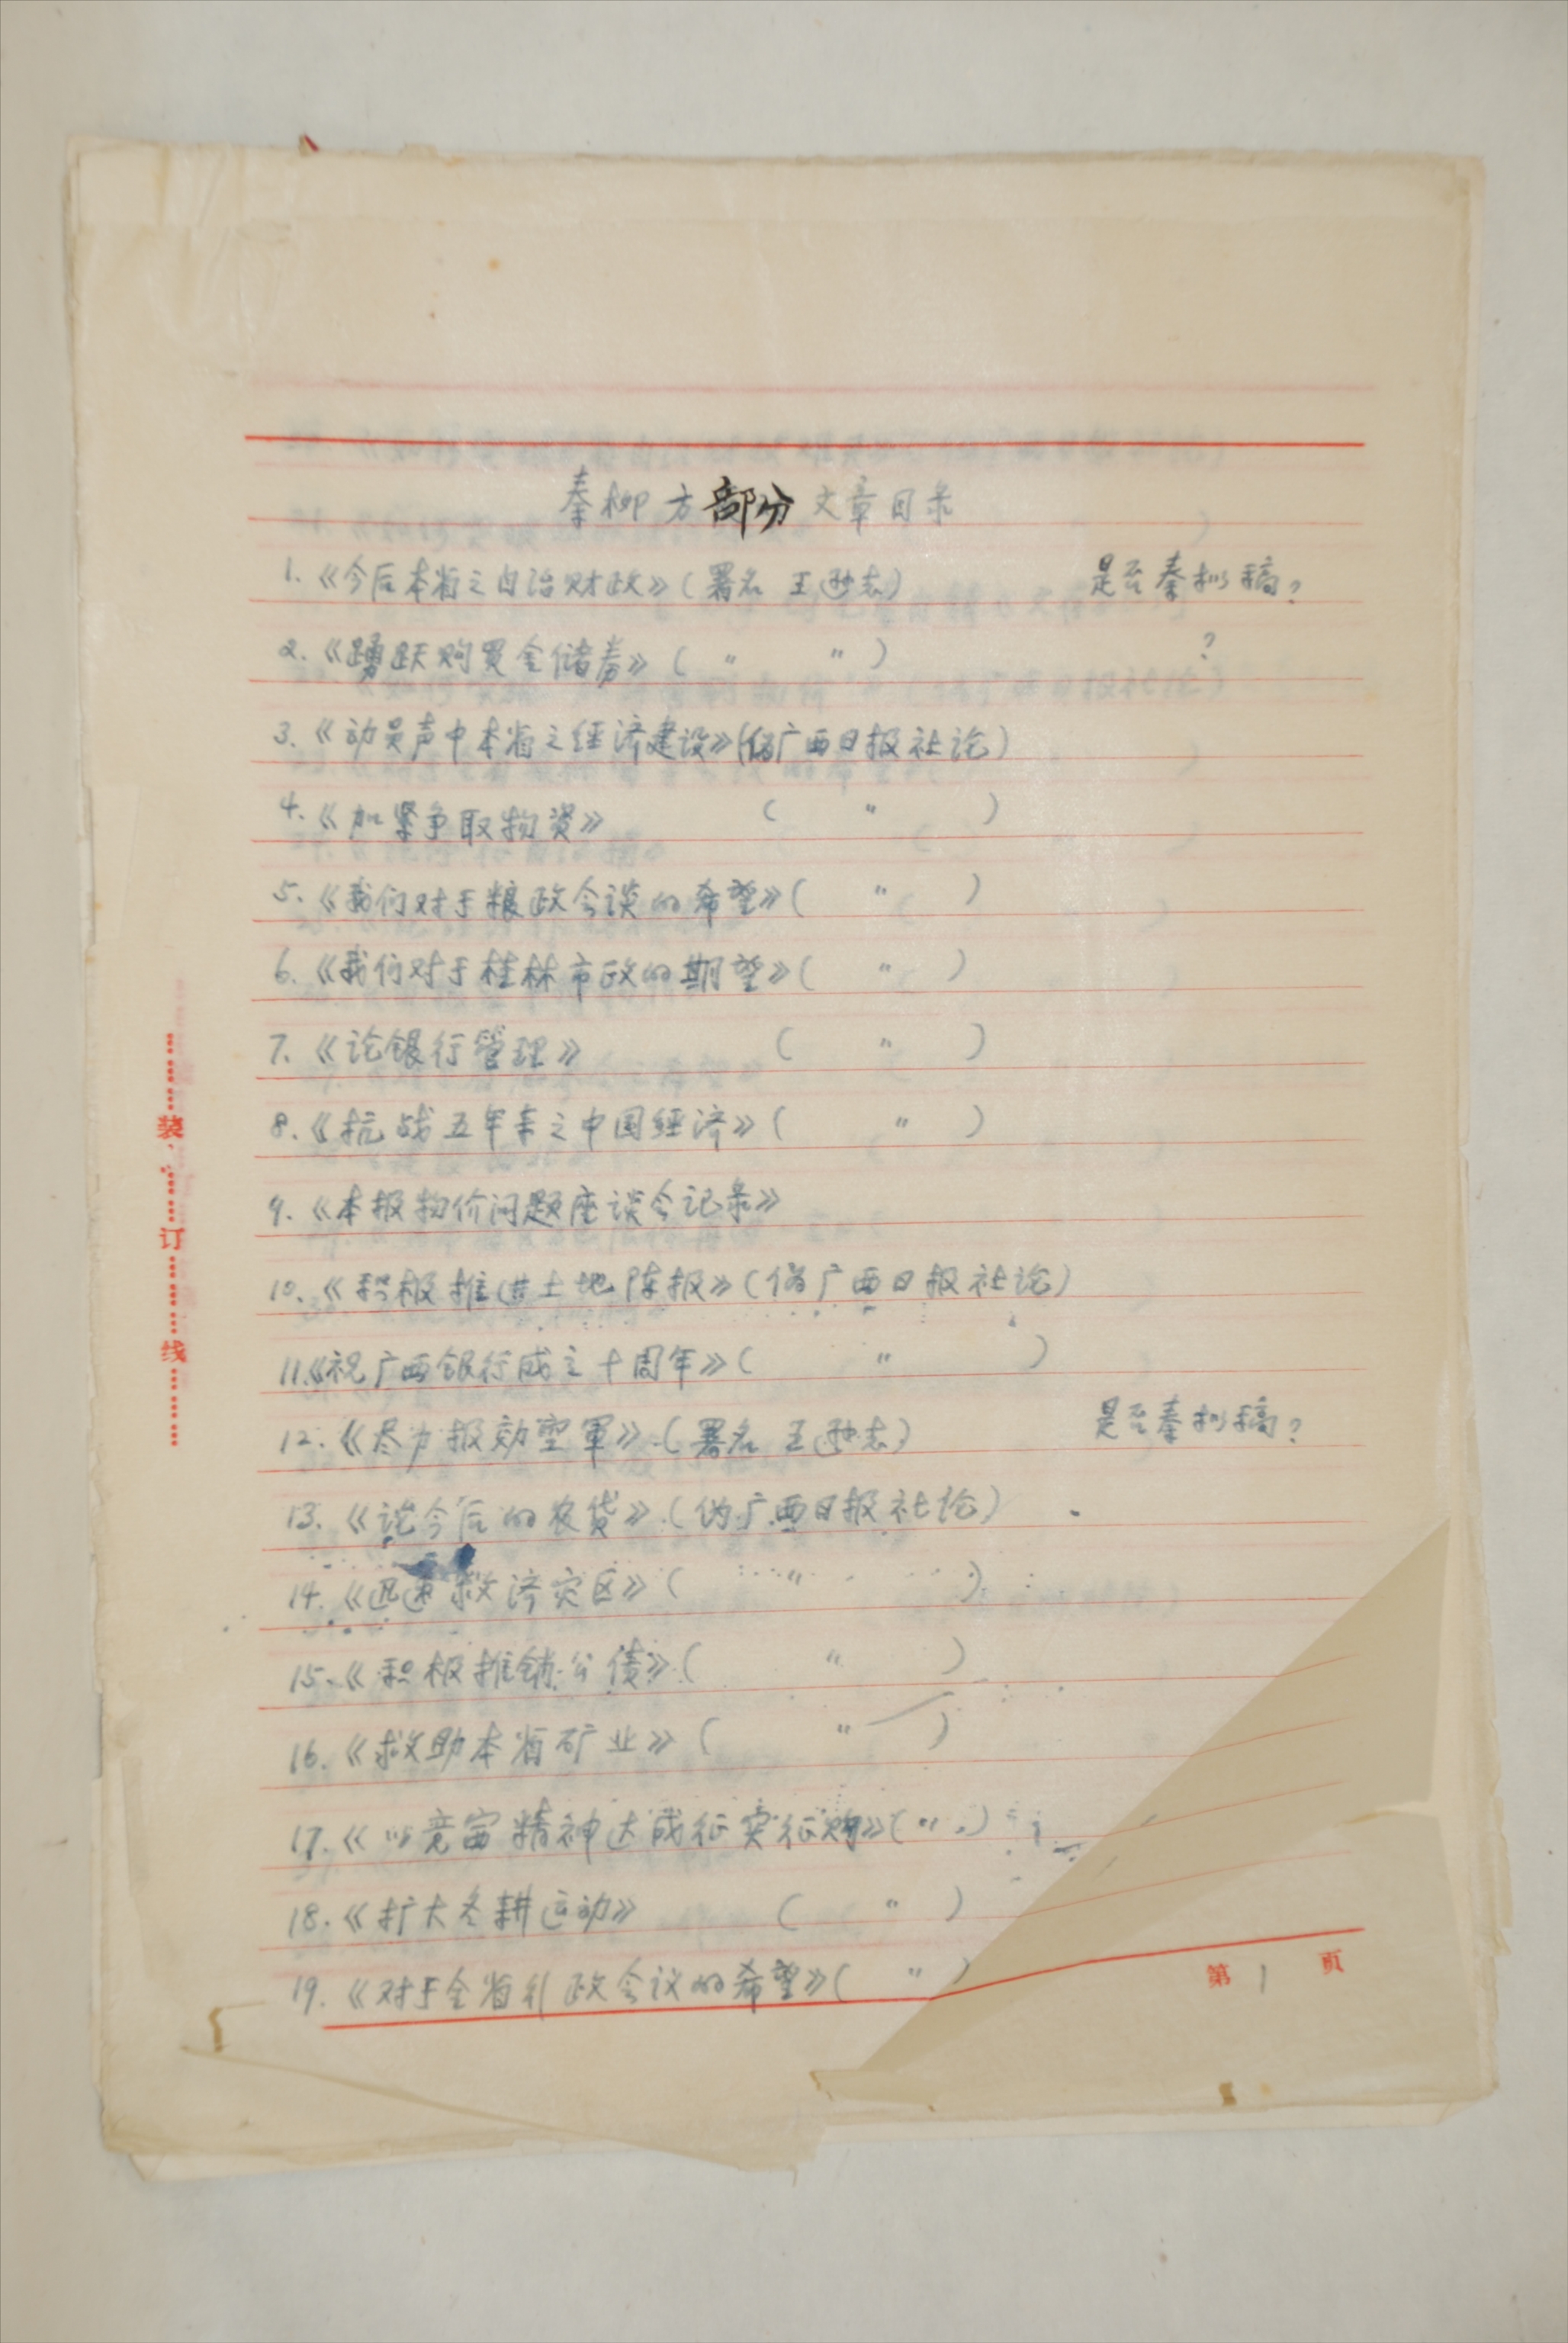 秦柳方部分文章目录
1.《今后本省之自治财政》(署名 王逊志) 是否秦拟稿?
2.《踴跃购买金储券》( 〃 〃 ) ?
3.《动员声中本省之经济建设》(伪广西日报社论)
4.《加紧争取物资》 ( 〃 )
5.《我们对于粮政会谈的希望》( 〃 )
6.《我们对于桂林市政的期望》( 〃 )
7.《论银行管理》 ( 〃 )
8.《抗战五年来之中国经济》( 〃 )
9.《本报物价问题座谈会记录》
10.《积极推进土地陈报》(伪广西日报社论)
11.《祝广西银行成立十周年》( 〃 )
12.《尽力报効空軍》(署名 王逊志) 是否秦拟稿?
13.《论今后的农贷》(伪广西日报社论)
14.《迅速救济灾区》( 〃 )
15.《积极推销公债》( 〃 )
16.《救助本省矿业》( 〃 )
17.《以竞富精神达成征实征购》( 〃 )
18.《扩大冬耕运动》 ( 〃 )
19.《对于全省行政会议的希望》( 〃 )
装订线
第 1 页